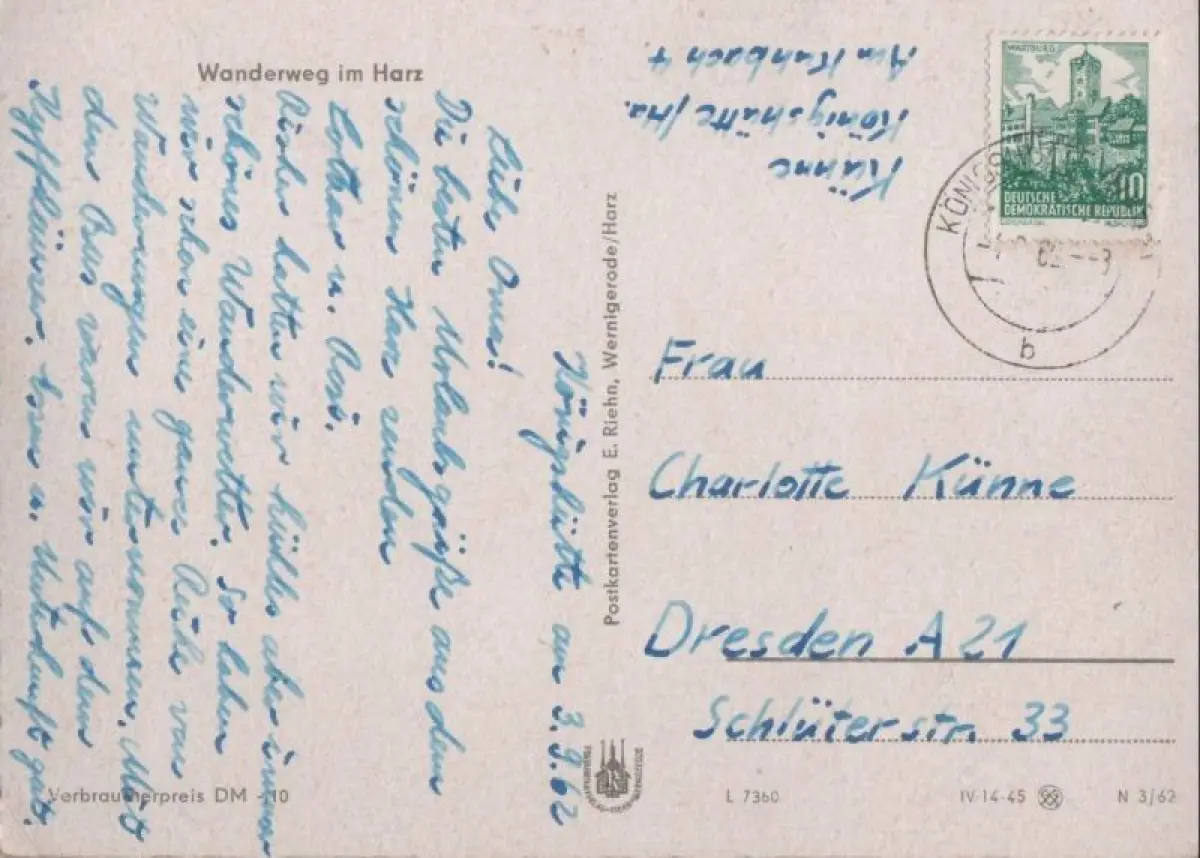 Wanderweg im Harz
Königshütte am 3.9.62
Liebe Oma!
Die besten Urlaubsgrüße aus dem
schönen Harz senden
Lothar u.
Bisher hatten wir kühles aber immer
schönes Wanderwetter. So haben
wir schon eine ganze Reihe von
Wanderungen unternommen. Mit
dem Bus waren wir auf dem
Kyffhäuser. Essen u. Unterkunft gut.
Verbraucherpreis DM -,10
Postkartenverlag E. Riehn, Wernigerode/Harz
Künne
Königshütte/Hz.
Am 4
WARTBURG
10
DEUTSCHE
DEMOKRATISCHE REPUBLIK
KÖNIGS
62 -8
b
Frau
Charlotte Künne
Dresden A 21
Schlüterstr. 33
L 7360
IV-14-45
N 3/62